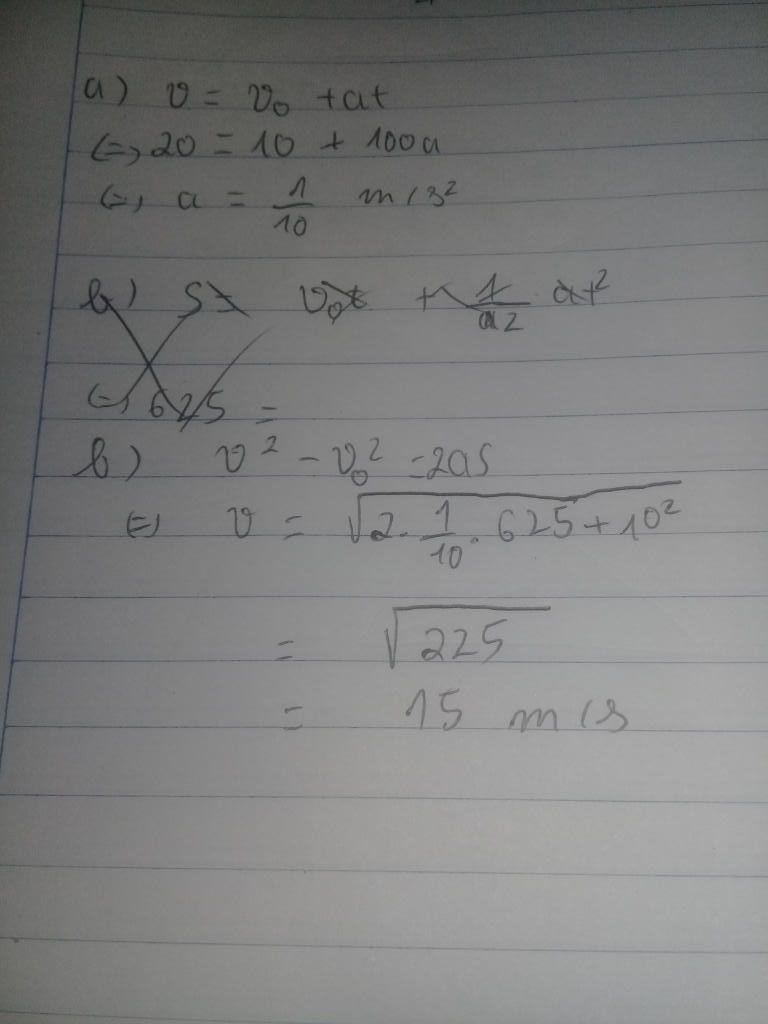 a) v = v₀ + at
(=) 20 = 10 + 100a
(=) a = 1/10 m/s²
b) S = v₀t + 1/2 at²
(=) 625 =
b) v² - v₀² = 2aS
(=) v = √(2 . 1/10 . 625 + 10²)
= √225
= 15 m/s